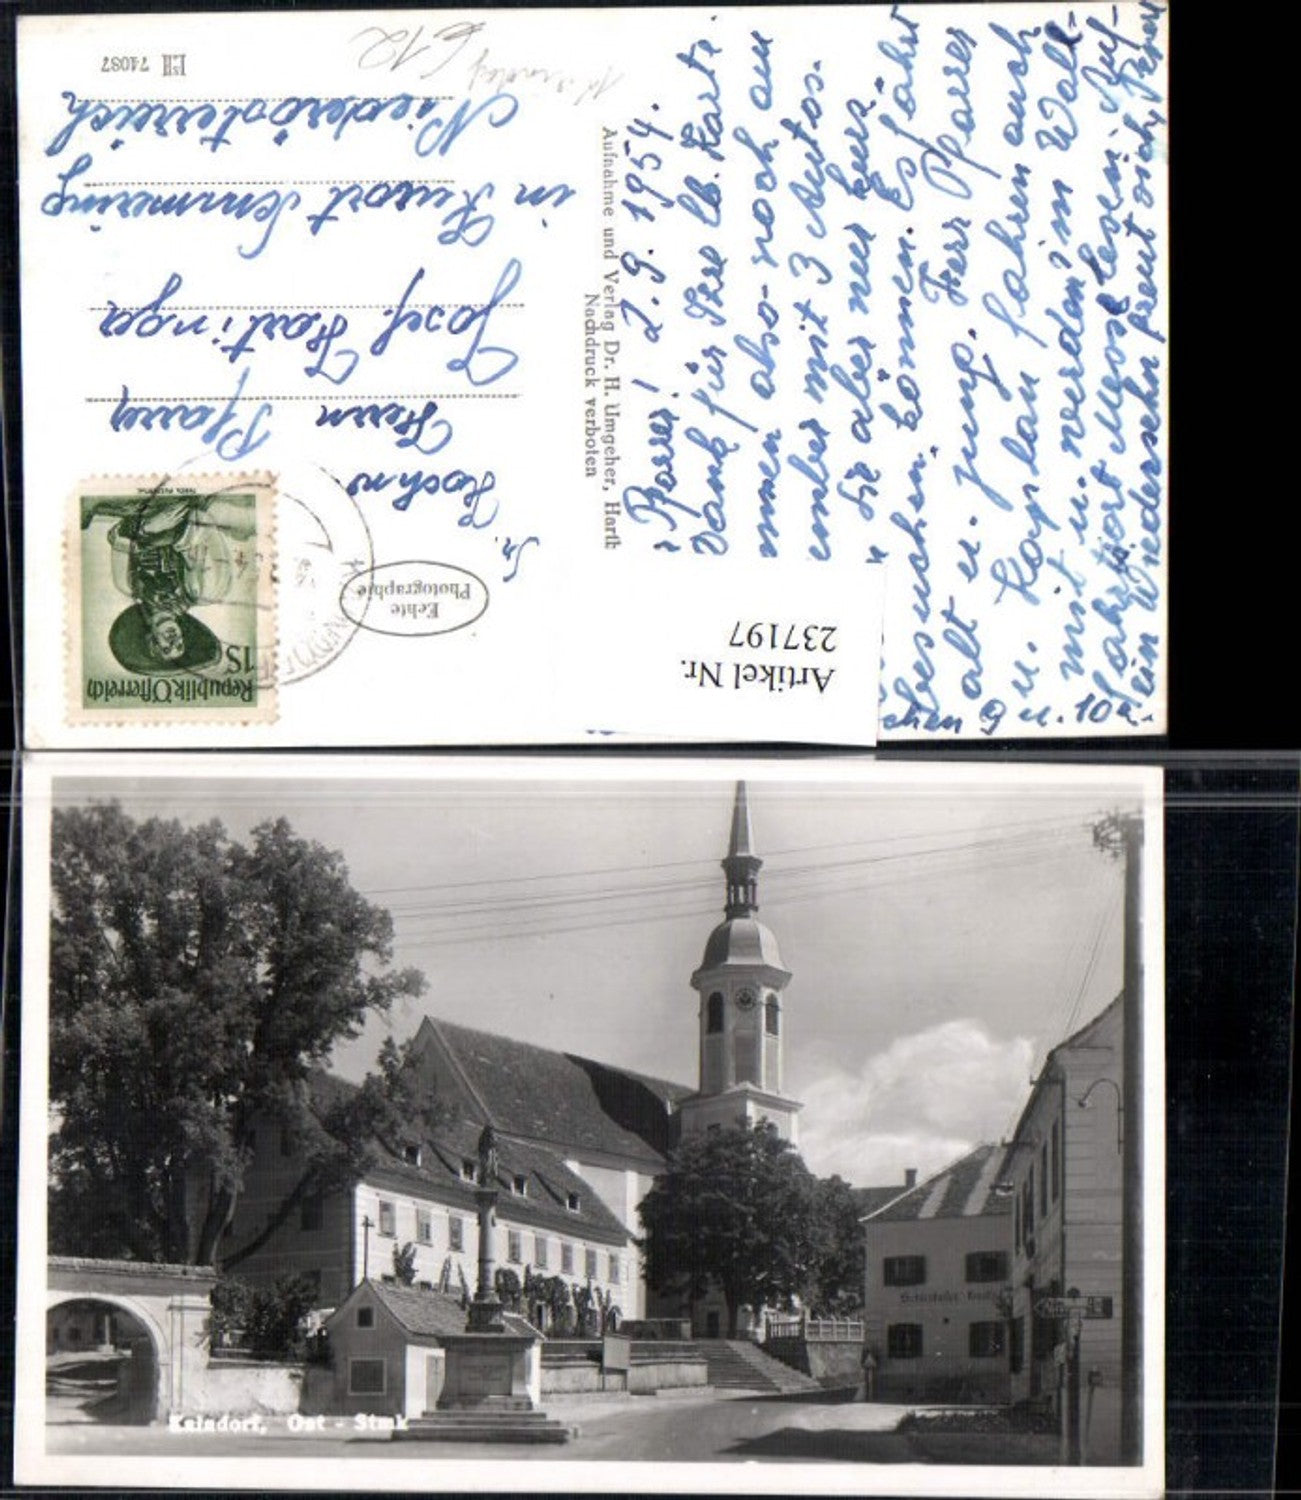 Republik Österreich
1S
Echte
Photographie
Sr.
Hochw.
Herrn
Pfarrer
Josef Hartinger
in Kurort Semmering
Niederösterreich
I.SII 74087
612
Aufnahme und Verlag Dr. H. Umgeher, Hartb
Nachdruck verboten
Pfarrer! 2.9.1954.
Dank für Ihre lb. Karte.
mmen also noch am
ember mit 3 Autos.
Sie aber nur kurz
besuchen können. Es fährt
alt u. jung. Herr Pfarrer
u. Kaplan fahren auch
mit u. werden im Wall-
fahrtsort Messe lesen. Auf
ein Wiedersehn freut sich
9 u. 10
Artikel Nr.
237197
Kaindorf, Ost - Stmk